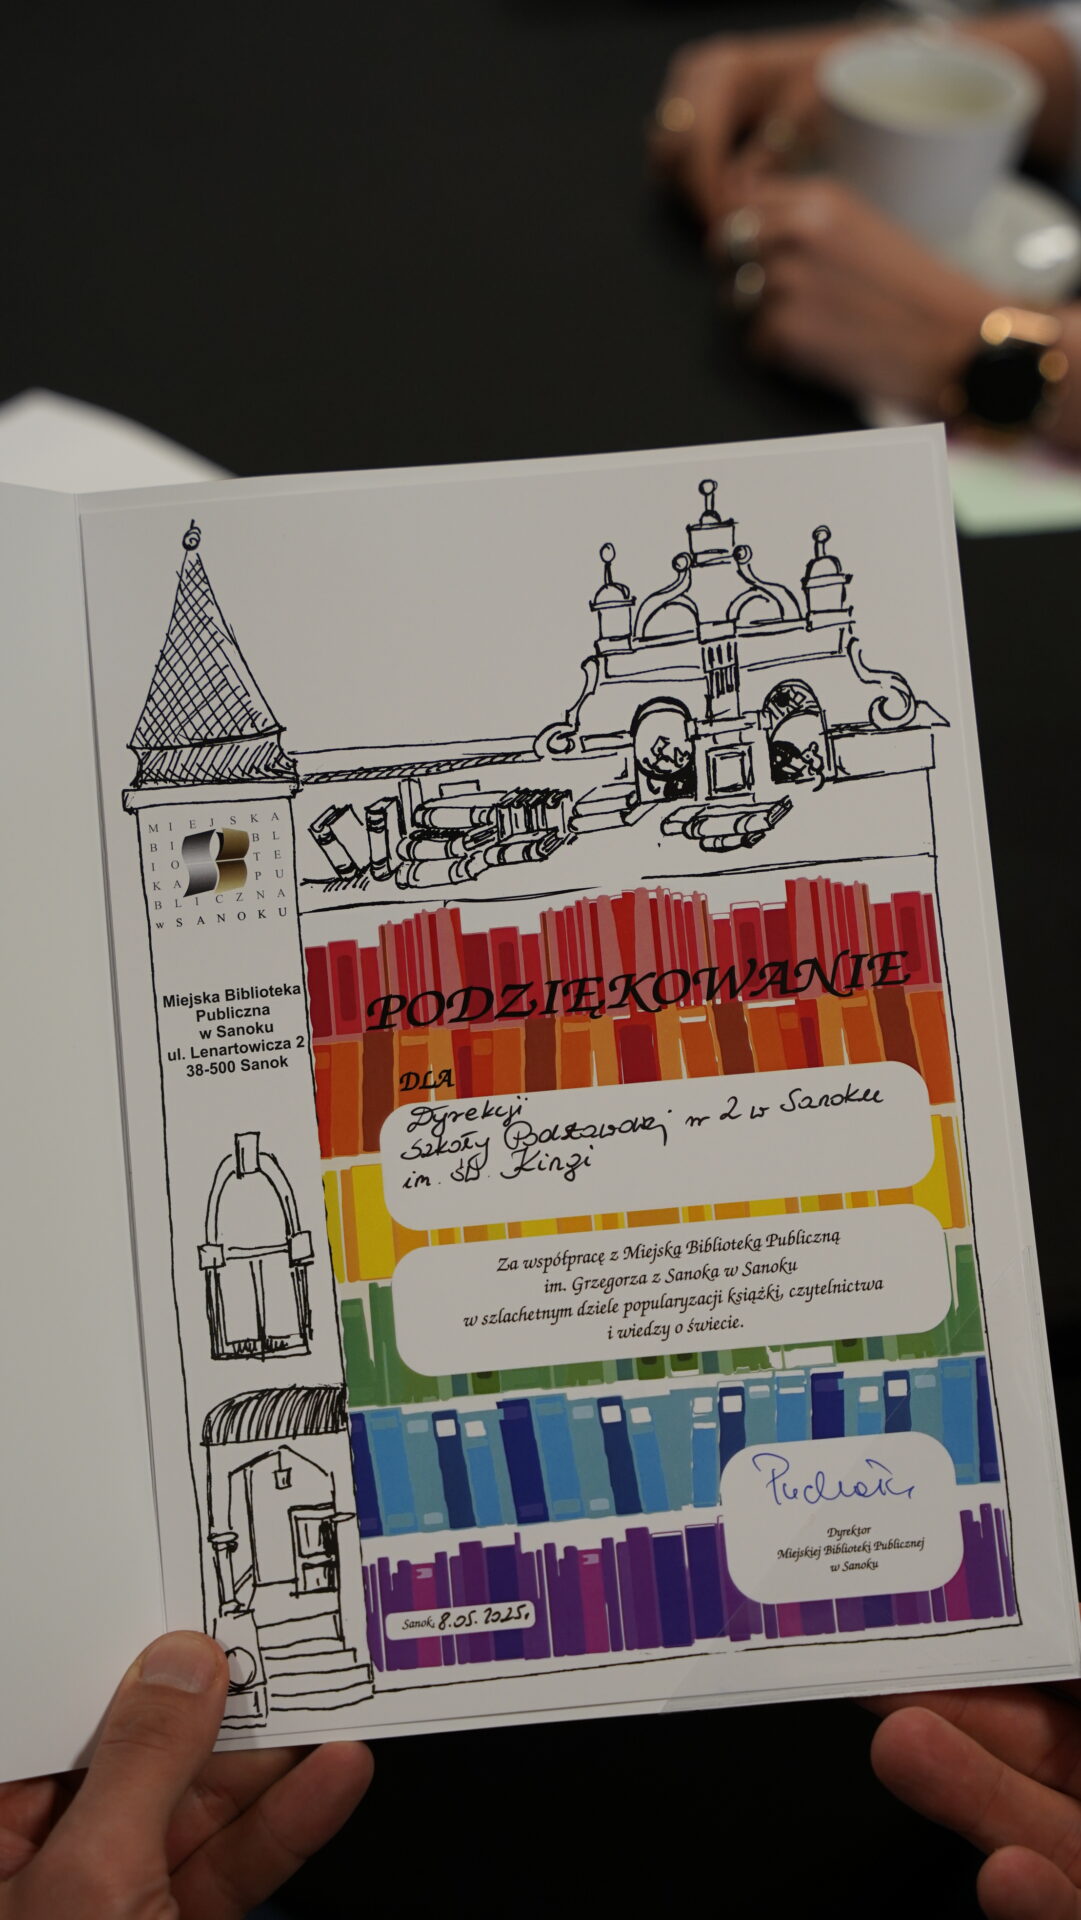 MIEJSKA
BIBL
IOTE
KAPU
BLICZNA
w SANOKU
Miejska Biblioteka
Publiczna
w Sanoku
ul. Lenartowicza 2
38-500 Sanok
PODZIĘKOWANIE
DLA
Dyrekcji
Szkoły Podstawowej nr 2 w Sanoku
im. św. Kingi
Za współpracę z Miejską Biblioteką Publiczną
im. Grzegorza z Sanoka w Sanoku
w szlachetnym dziele popularyzacji książki, czytelnictwa
i wiedzy o świecie.
Dyrektor
Miejskiej Biblioteki Publicznej
w Sanoku
Sanok, 8.05.2025.